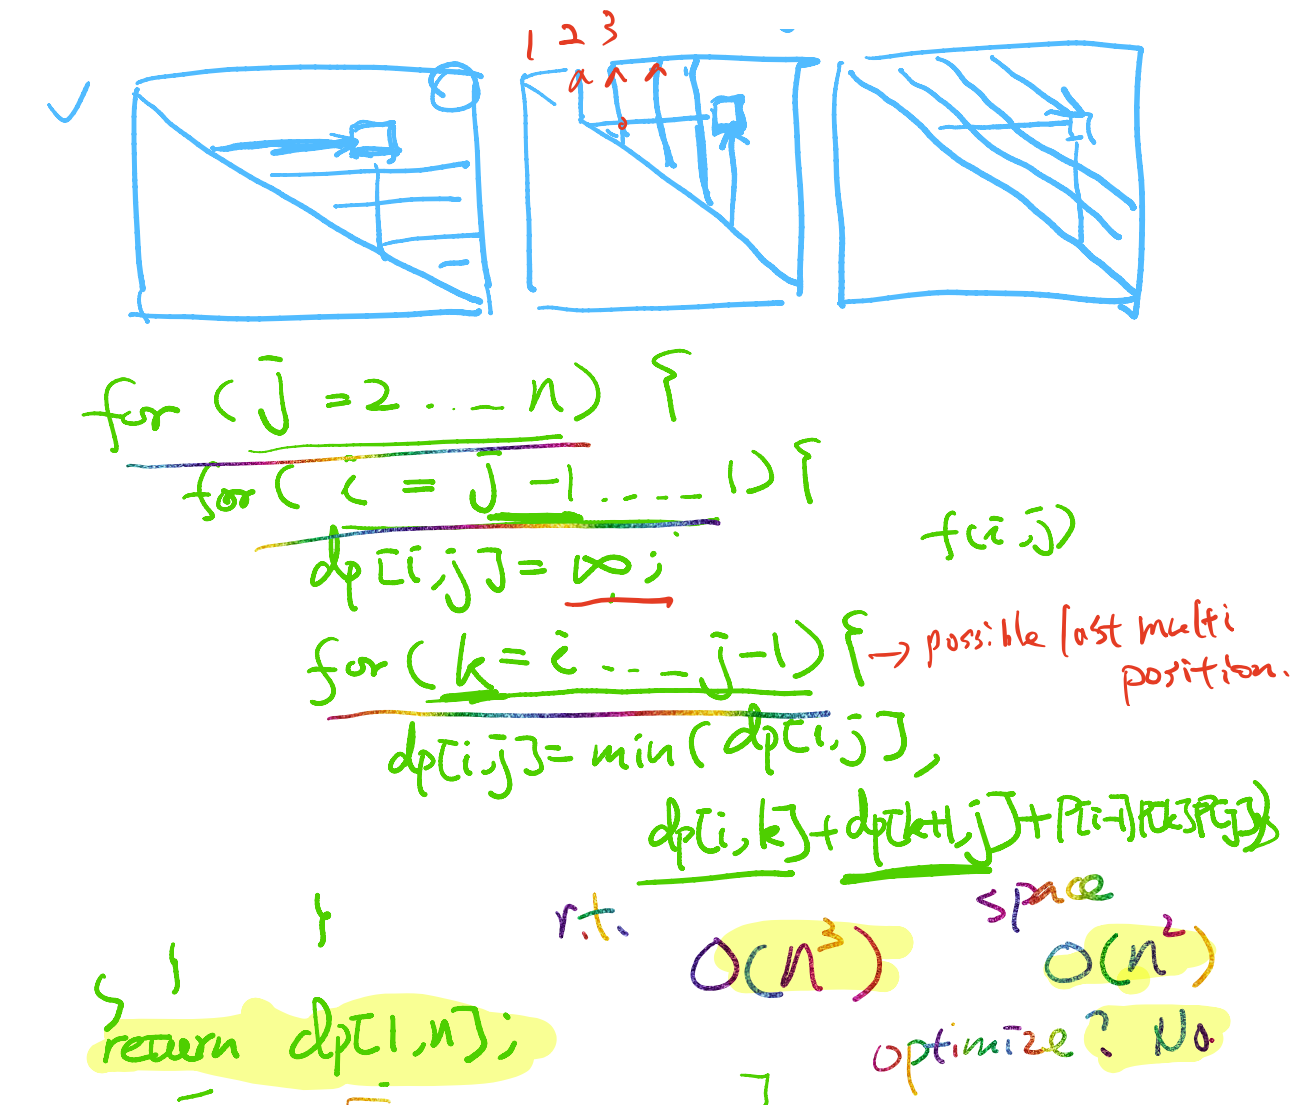 1 2 3
for (j = 2 ..... n) {
for (i = j-1 ..... 1) {
dp[i,j] = ∞;
f(i,j)
for (k = i .... j-1) { → possible last multi
position.
dp[i,j] = min(dp[i,j],
dp[i,k] + dp[k+1,j] + P[i-1]P[k]P[j])
}
r.t. space
O(n³) O(n²)
}
}
return dp[1,n];
optimize? No.